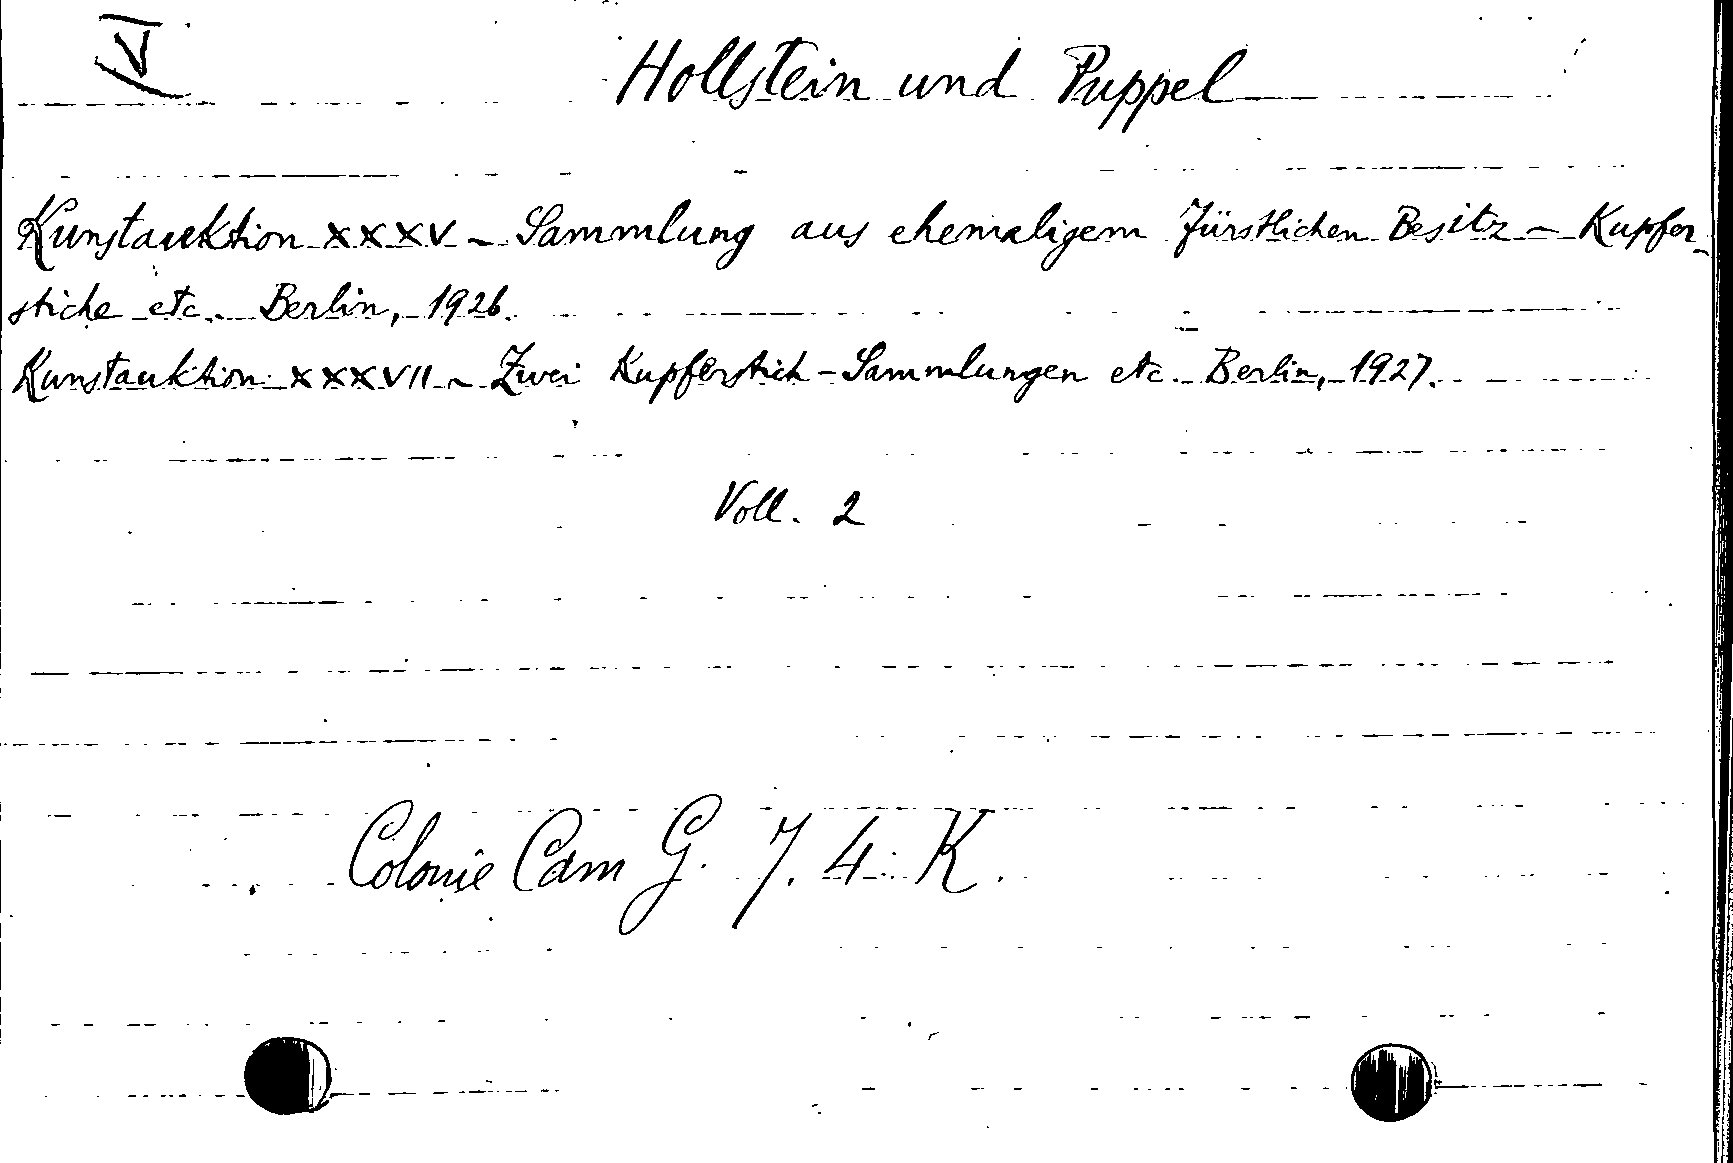 V
Hollstein und Puppel
Kunstauktion XXXV - Sammlung aus ehemaligem Fürstlichen Besitz - Kupfer-
stiche etc. Berlin, 1926.
Kunstauktion XXXVII - Zwei Kupferstich-Sammlungen etc. Berlin, 1927.
Voll. 2
Colonie Cam G. 7. 4. K.